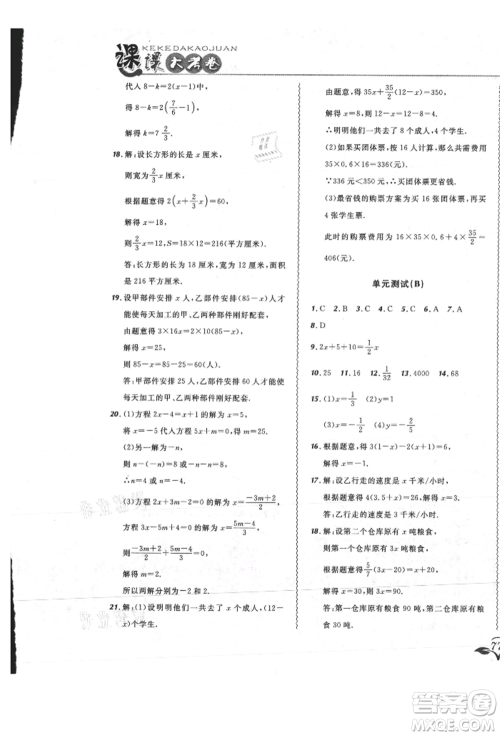 KEKEDAKAOJUAN
课课大考卷
代入 8-k=2(x-1)中,
得 8-k=2(7/6-1)
解得 k=23/3.
18. 解:设长方形的长是 x 厘米,
则宽为2/3x 厘米,
根据题意得 2(x+2/3x)=60,
解得 x=18,
则2/3x=12,S=18×12=216(平方厘米).
答:长方形的长是 18 厘米,宽是 12 厘米,面积是
216 平方厘米.
19. 解:设甲部件安排 x 人,乙部件安排(85-x)人
才能使每天加工的甲、乙两种部件刚好配套,
由题意得 3×16x=2×10×(85-x),
解得:x=25,
则 85-x=85-25=60(人).
答:甲部件安排 25 人,乙部件安排 60 人才能
使每天加工的甲、乙两种部件刚好配套.
20. 解:(1)方程 2x-4=x+1,解得 x=5,
将 x=-5 代入方程 5x+m=0,解得 m=25.
(2)另一解为-n,
则 n-(-n)=8 或-n-n=8,
∴n=4 或 n=-4.
(3)方程 2x+3m-2=0 的解为 x=(-3m+2)/2,
方程 3x-5m+4=0 的解为 x=(5m-4)/3,
则(-3m+2)/2+(5m-4)/3=0,
解得 m=2.
所以两解分别为-2,2.
21. 解:(1)设明明他们一共去了 x 个成人,(12-
x)个学生.
由题意,得 35x+35/2(12-x)=350,
解得 x=8,
∴明明他们一共去了 8 个成人,4 个学生.
(2)如果买团体票,按 16 人计算,共需费用
35×0.6×16=336(元).
∵336 元<350 元,∴买团体票更省钱.
(3)最省钱的购票方案为买 16 张团体票,再买
4 张学生票.
此时的购票费用为 16×35×0.6+4×17.5=
406(元).
单元测试(B)
1. C 2. D 3. A 4. C 5. C 6. A 7. A
8. D
9. 2x+5+10=1/2x
10. 25 11. 16 12. 1/32 13. 4000 14. 68
15. (1)x=3 (2)y=1
(3)y=-1/4 (4)x=2
16. 根据题意得 3(2x-1)=2(1/2x+1),
解得 x=1.
17. 解:设乙行走的速度是 x 千米/小时.
根据题意得 4(3.5+x)=26,
解得 x=3.
答:乙行走的速度是 3 千米/小时.
18. 解:设第二个仓库原有 x 吨粮食,
则第一个仓库原有 3x 吨.
根据题意得5/7(3x-20)=x+20,
解得 x=30,则 3x=90.
答:第一仓库原有粮食 90 吨,第二仓库原有粮
食 30 吨.
77
答案圈
MXQE.COM